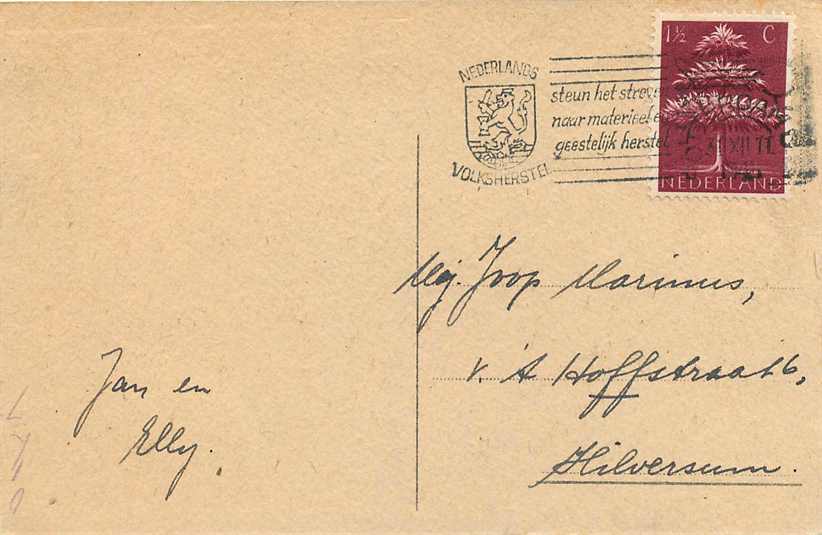 NEDERLANDS
VOLKSHERSTEL
steun het streve
naar materieel e
geestelijk herstel
1½ C
XII 11
NEDERLAND
Mej. Joop Marinus,
v. 't Hoffstraat 6,
Hilversum.
Jan en
Elly.